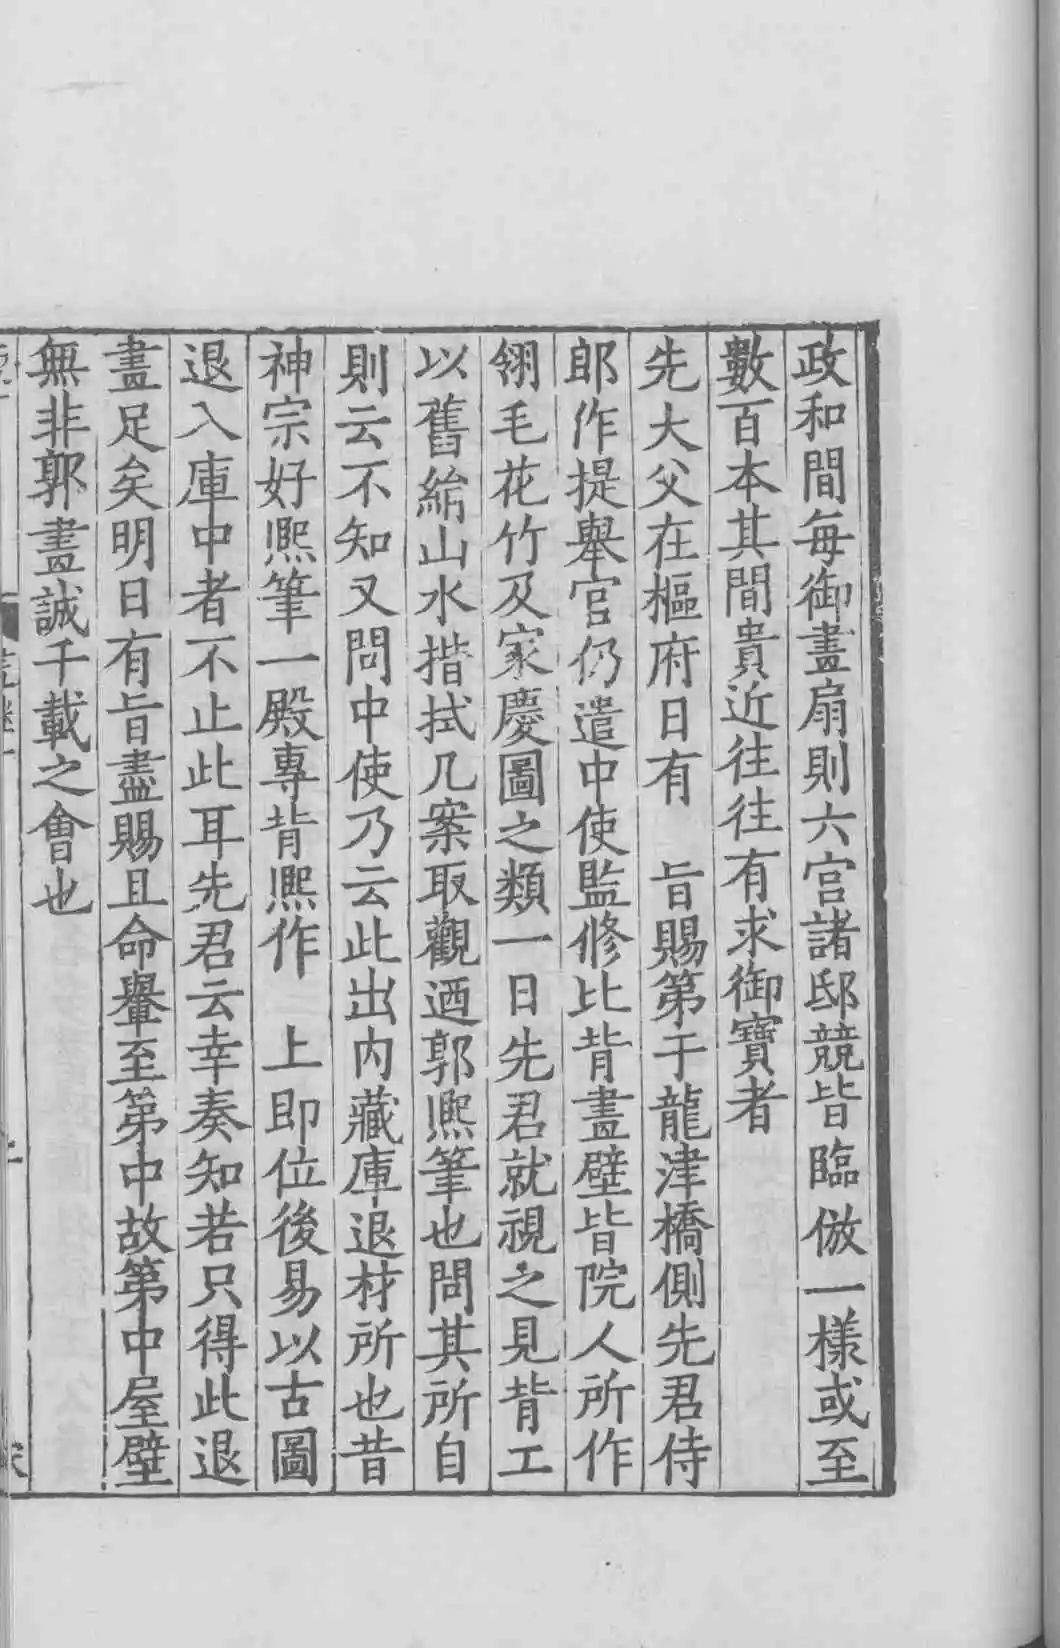 政和間每御畫扇則六宮諸邸競皆臨倣一樣或至
數百本其間貴近往往有求御寶者
先大父在樞府日有　旨賜第于龍津橋側先君侍
郎作提舉官仍遣中使監修比背畫壁皆院人所作
翎毛花竹及家慶圖之類一日先君就視之見背工
以舊絹山水揩拭几案取觀迺郭熙筆也問其所自
則云不知又問中使乃云此出内藏庫退材所也昔
神宗好熙筆一殿專背熙作　上即位後易以古圖
退入庫中者不止此耳先君云幸奏知若只得此退
畫足矣明日有旨盡賜且命轝至第中故第中屋壁
無非郭畫誠千載之會也